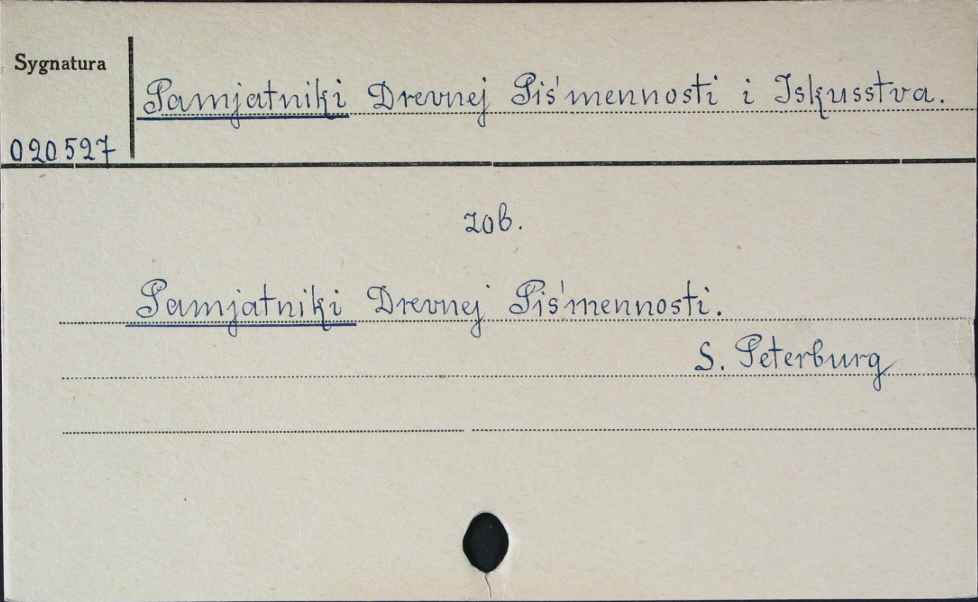 Sygnatura
Pamjatniki Drevnej Piś'mennosti i Iskusstva.
020527
zob.
Pamjatniki Drevnej Piś'mennosti.
S. Peterburg